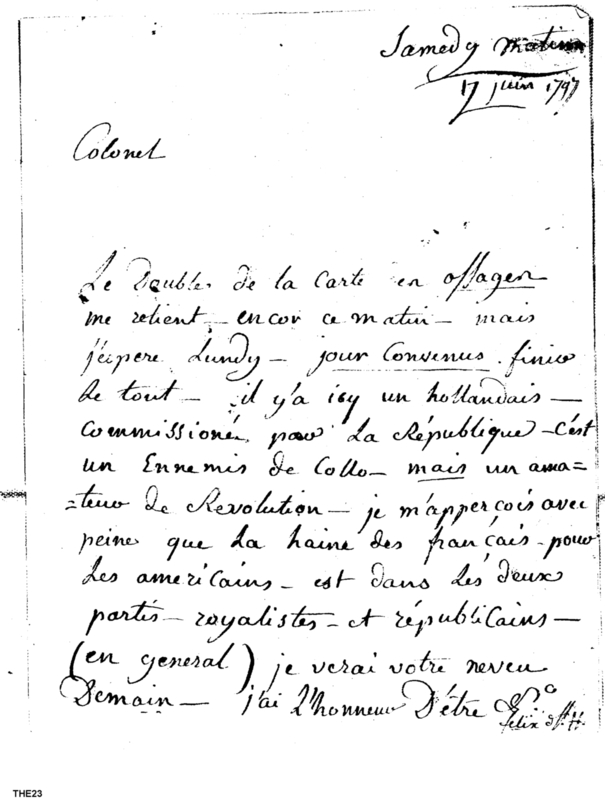 Samedy matin
17 juin 1797
Colonel
Le Double de la Carte en
me retient - encor ce matin - mais
j'espere Lundy - jour Convenus. finir
le tout - il y'a icy un hollandais -
Commissioné, pour La République - C'est
un Ennemis de Collo - mais un ama=
=teur de Revolution - je m'apperçois avec
peine que La haine des français - pour
Les americains - est dans Les deux
partis - royalistes - et républicains -
(en general) je verai votre neveu
Demain - j'ai L'honneur D'être &c
felix d St. H.
THE23